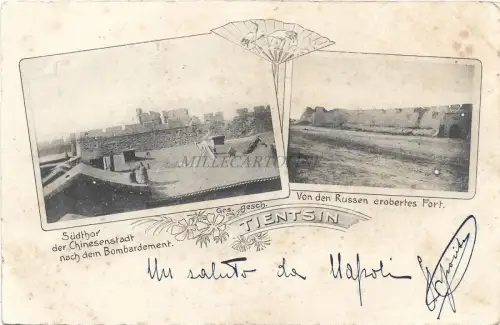 MILLECARTOLINE
Südthor
der Chinesenstadt
nach dem Bombardement.
Von den Russen erobertes Fort.
Ges. gesch.
TIENTSIN
Un saluto da Napoli